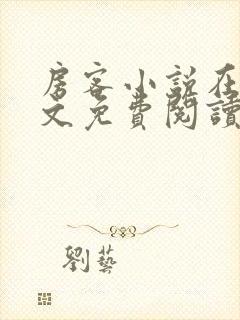 房客小說在
文免費閱讀
劉藝